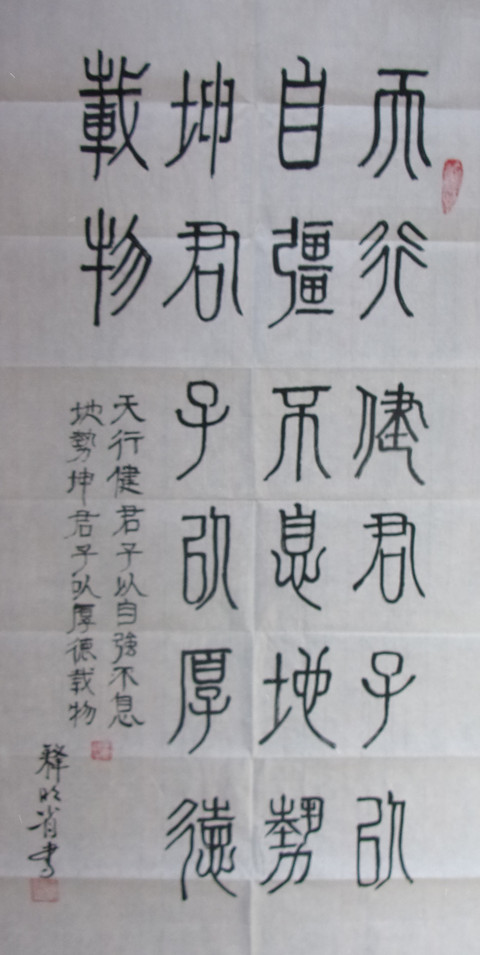 天行健君子以
自彊不息地勢
坤君子以厚德
載物
天行健君子以自強不息
地勢坤君子以厚德载物
釋明肖書